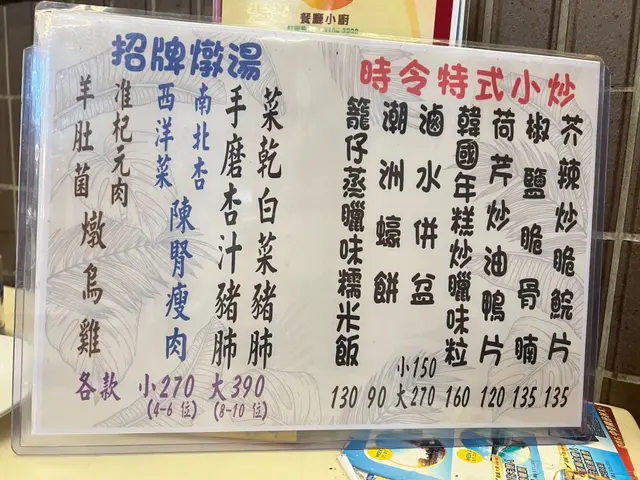 餐廳小廚
時令特式小炒
芥辣炒脆鯇片 135
椒鹽脆骨腩 135
荷芹炒油鴨片 120
韓國年糕炒臘味粒 160
滷水併盆 小150 大270
潮洲蠔餅 90
籠仔蒸臘味糯米飯 130
招牌燉湯
菜乾白菜豬肺
手磨杏汁豬肺
南北杏
西洋菜
陳腎瘦肉
淮杞元肉
羊肚菌燉烏雞
各款 小270 大390
(4-6 位) (8-10 位)